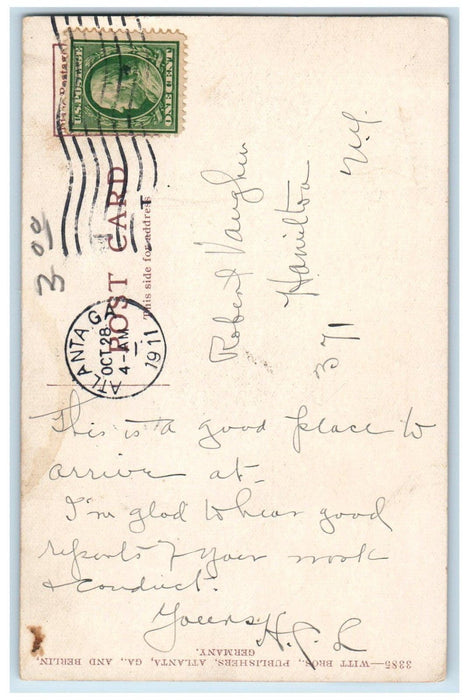 U.S. POSTAGE
ONE CENT
POST CARD
This side for address
ATLANTA, GA.
OCT 28
4-AM
1911
3 00
Robert Vaughn
Hamilton
N.Y.
371
This is a good place to
arrive at-
I'm glad to hear good
reports of your work
& conduct.
Yours,
H.
3385—WITT BROS., PUBLISHERS, ATLANTA, GA., AND BERLIN,
GERMANY.